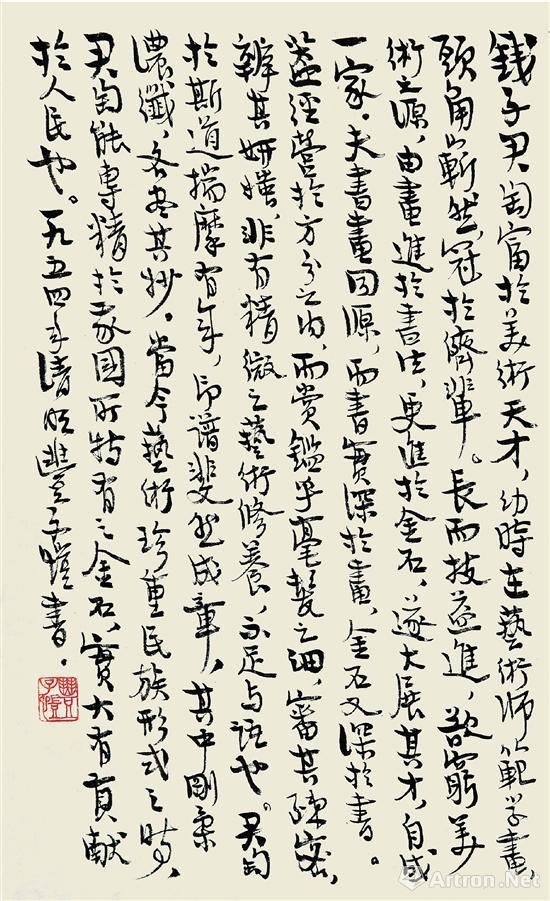 钱子君匋富於美術天才，幼時在藝術师範学畫，
頭角嶄然，冠於儕輩。長而技益進，欲窮美
術之源，由畫進於書法，更進於金石，遂大展其才，自成
一家。夫書畫同源，而書實深於畫，金石又深於書。
蓋經营於方寸之内，而赏鑑乎毫髮之细，審其疎密，
辨其妍媸，非有精微之藝術修養，不足与語也。君匋
於斯道揣摩有年，印谱斐然成章，其中剛柔
濃纖，各尽其妙。當今藝術珍重民族形式之時，
君匋能專精於我國所特有之金石，實大有貢献
於人民也。一九五四年清明豐子愷書。
豐子愷
Artron.Net